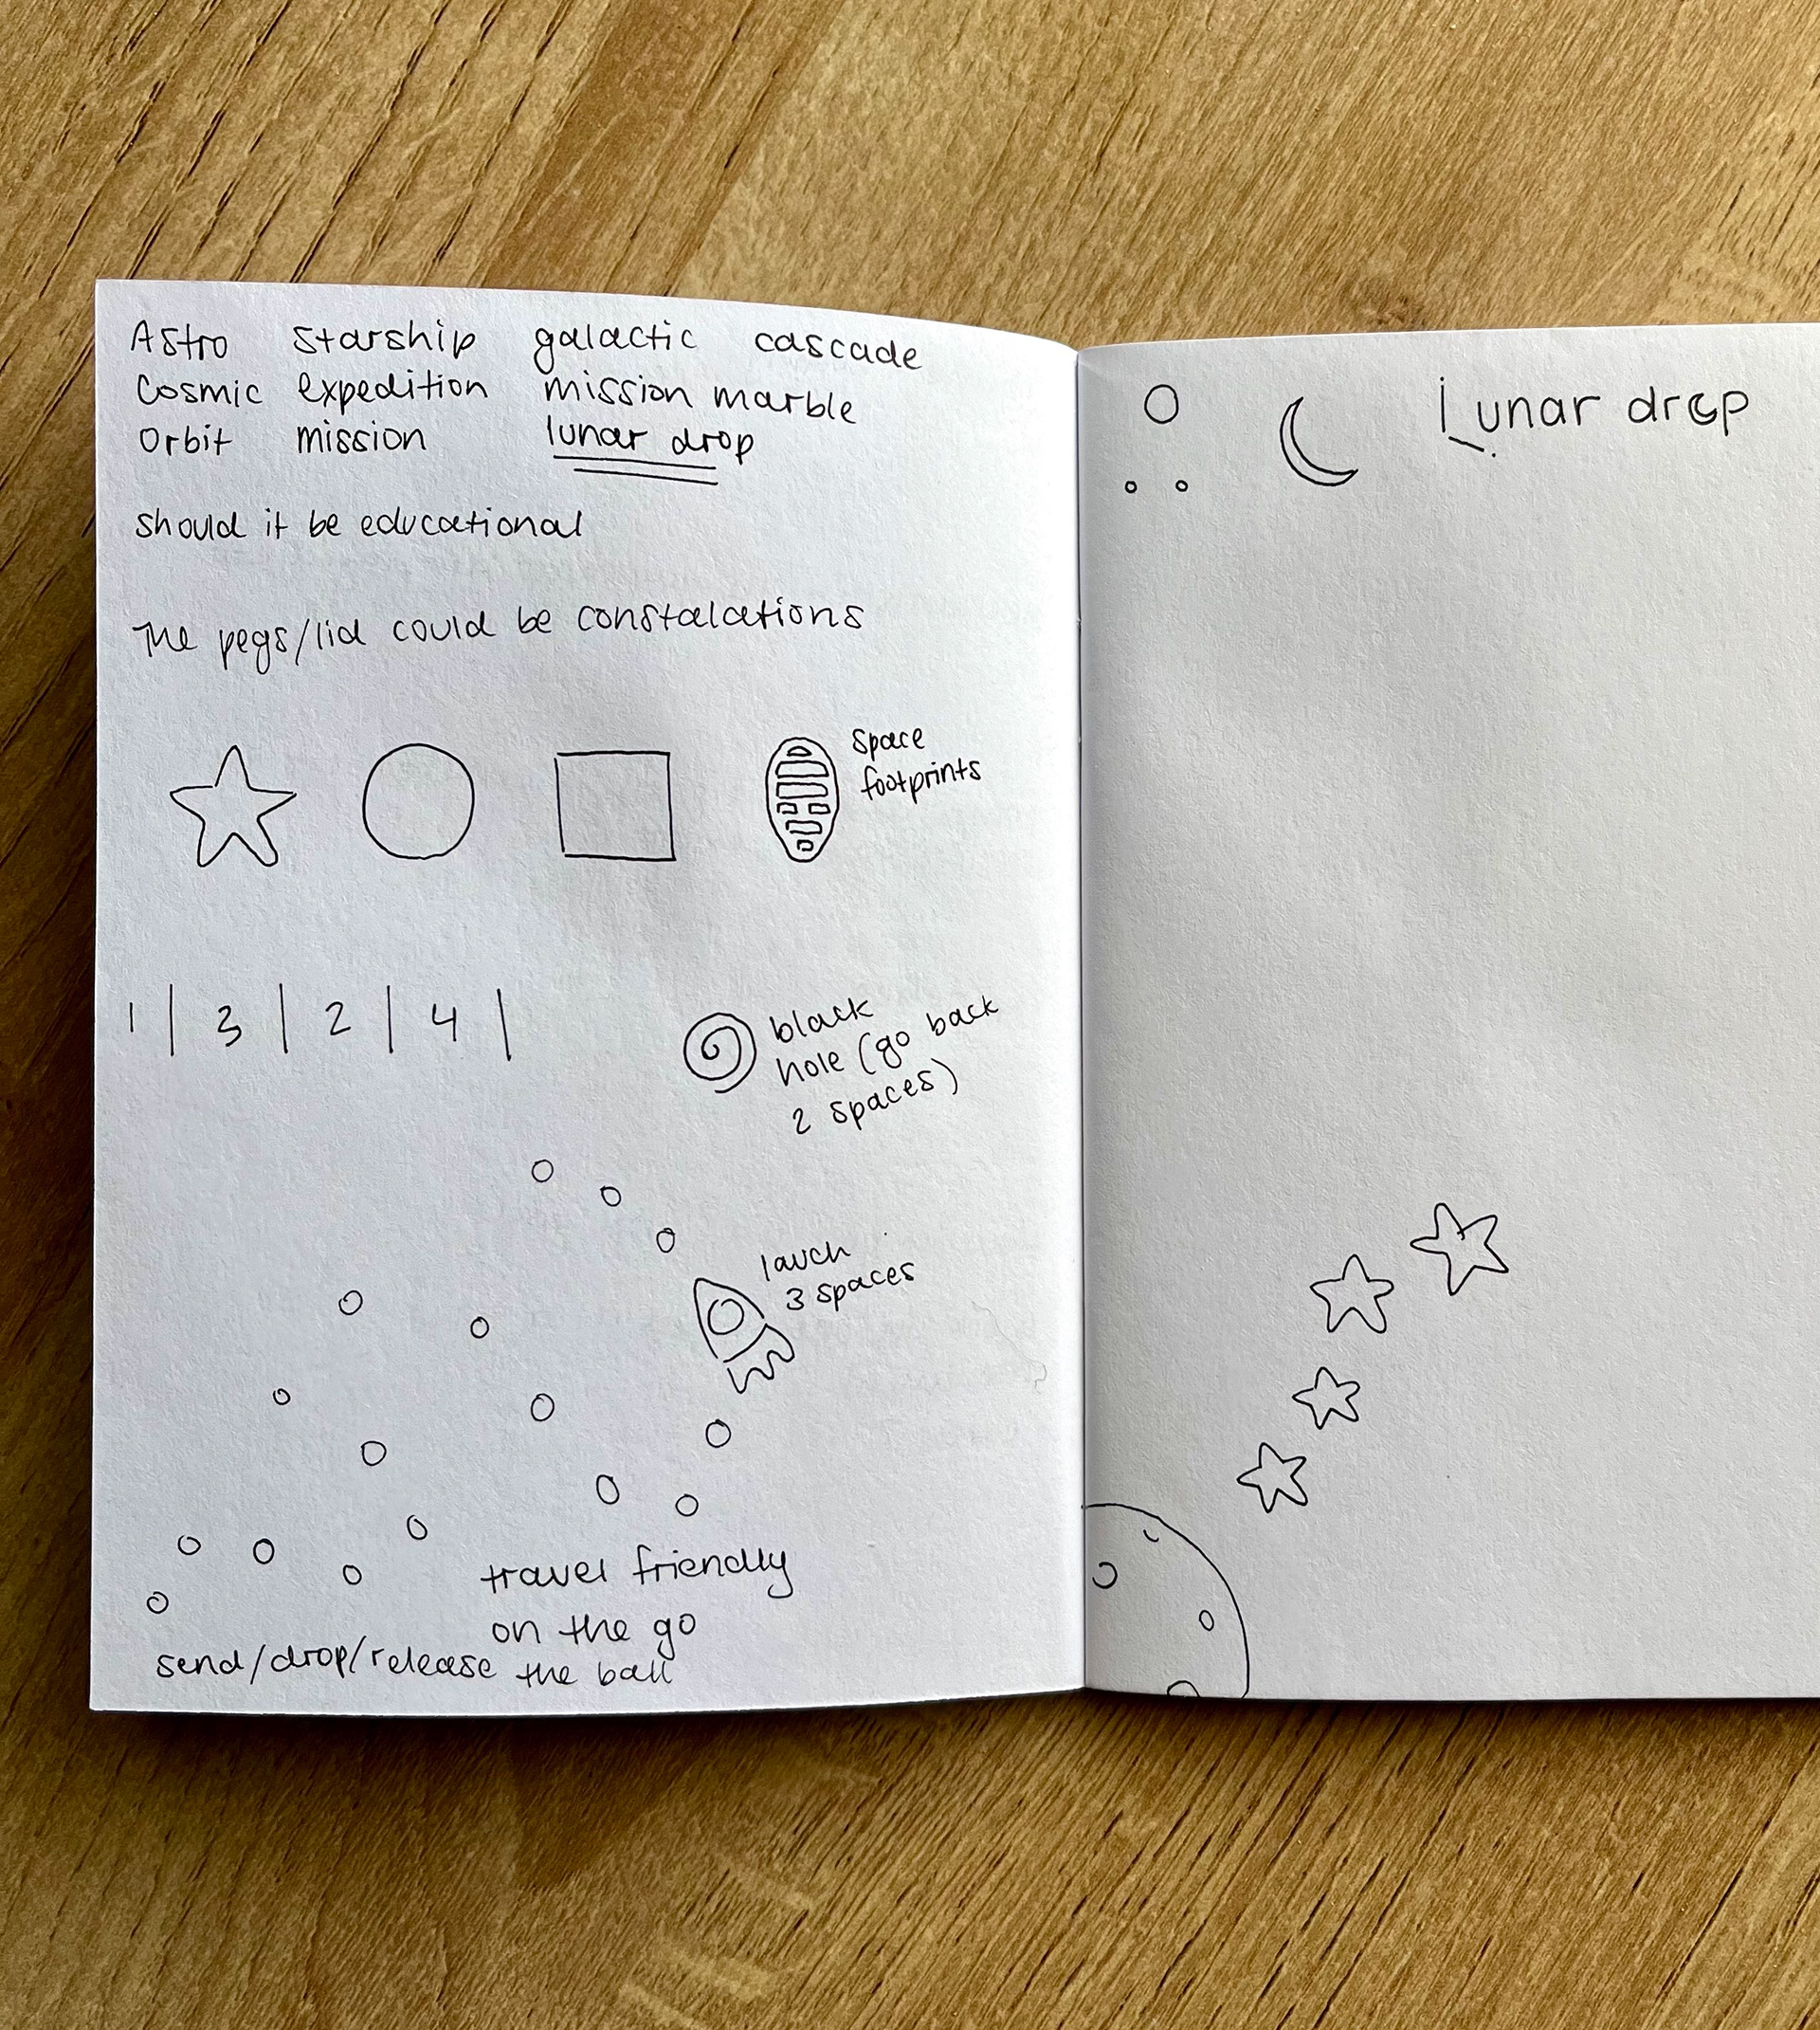 Astro starship galactic cascade
Cosmic expedition mission marble
Orbit mission lunar drop
should it be educational
The pegs/lid could be constalations
Space
footprints
1 | 3 | 2 | 4 |
black
hole (go back
2 spaces)
lauch
3 spaces
travel friendly
on the go
send/drop/release the ball
Lunar drop